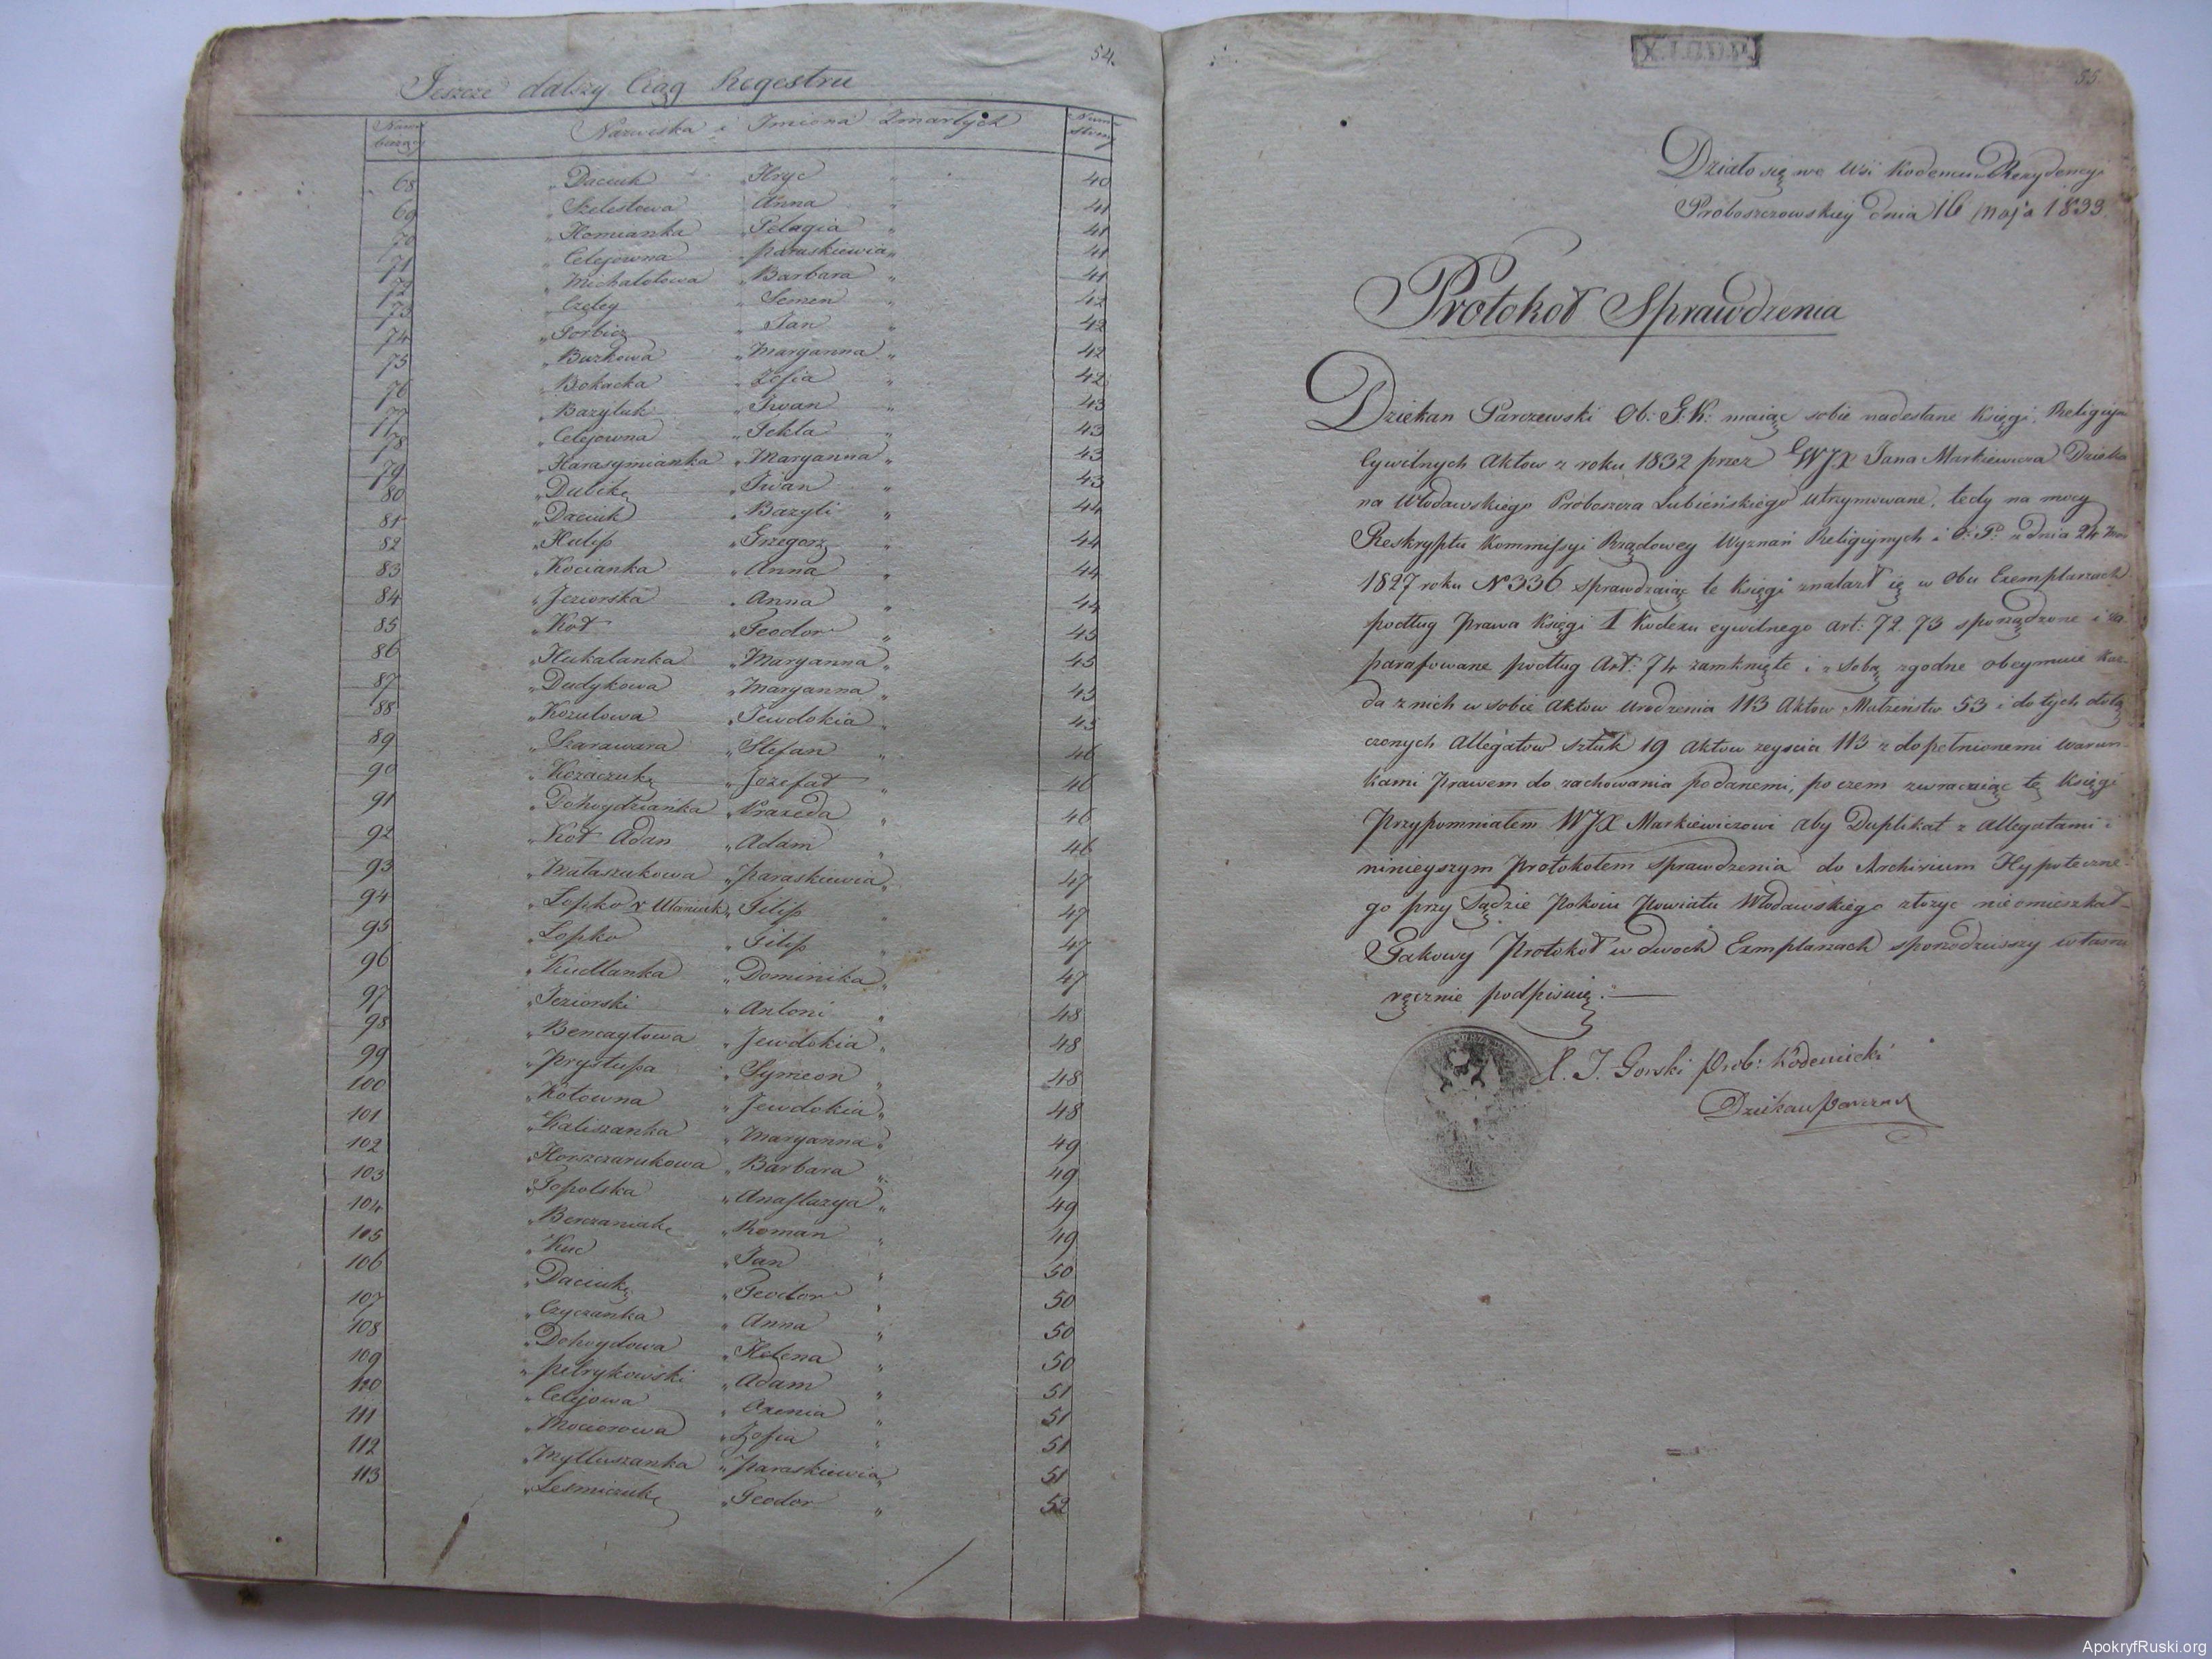 54.
Jeszcze dalszy Ciąg Regestru
Nazwiska i Imiona Zmarłych
68 „ Daciuk „ Hryc „ 40
69 „ Szelestowa „ Anna „ 41
70 „ Homianka „ Pelagia „ 41
71 „ Celejowna „ paraskiewia „ 41
72 „ Michalotowa „ Barbara „ 41
73 „ Czeley „ Semen „ 42
74 „ Jan „ 42
75 „ Buzkowa „ Maryanna „ 42
76 „ Bokacka „ Zofia „ 42
77 „ Bazyluk „ Iwan „ 43
78 „ Celejowna „ Tekla „ 43
79 „ Harasymianka „ Maryanna „ 43
80 „ Dubik „ Iwan „ 43
81 „ Daciuk „ Bazyli „ 44
82 „ Halip „ Grzegorz „ 44
83 „ Kocianka „ Anna „ 44
84 „ Jeziorska „ Anna „ 44
85 „ Kot „ Teodor „ 45
86 „ Hukalanka „ Maryanna „ 45
87 „ Dudykowa „ Maryanna „ 45
88 „ Kozulowa „ Jewdokia „ 45
89 „ Szarawara „ Stefan „ 46
90 „ Kozaczuk „ Jozefat „ 46
91 „ Dohoydzianka „ Praxeda „ 46
92 „ Kot Adan „ Adam „ 46
93 „ Mataszukowa „ paraskiewia „ 47
94 „ Lopko v Ulaniuk „ Filip „ 47
95 „ Lopko „ Filip „ 47
96 „ Kudlanka „ Dominika „ 47
97 „ Jeziorski „ Antoni „ 48
98 „ Jewdokia „ 48
99 „ prystupa „ Symeon „ 48
100 „ Kotowna „ Jewdokia „ 48
101 „ Kaliszanka „ Maryanna „ 49
102 „ Horszczarukowa „ Barbara „ 49
103 „ Topolska „ Anastazya „ 49
104 „ Berczaniuk „ Roman „ 49
105 „ Kuc „ Jan „ 50
106 „ Daciuk „ Teodor „ 50
107 „ Czyczanka „ Anna „ 50
108 „ Dohoydowa „ Helena „ 50
109 „ petrykowski „ Adam „ 51
110 „ Celejowa „ Axenia „ 51
111 „ Mociorowa „ Zofia „ 51
112 „ Myttuszanka „ paraskiewia „ 51
113 „ Lesniczuk „ Teodor „ 52
55
Działo się we Wsi Kodeniu Rezydencyi
Proboszczowskiey dnia 16 maja 1833
Protokoł Sprawdzenia
Dziekan Parczewski Ob: G: K: maiąc sobie nadesłane Księgi Religijn
Cywilnych Aktow z roku 1832 przez WJX Jana Markiewicza Dzieka
na Włodawskiego Proboszcza Lubieńskiego utrzymowane, tedy na mocy
Reskryptu Kommissyi Rządowey Wyznań Religijnych i O: P: z dnia 24
1827 roku N° 336 sprawdzaiąc te Księgi znalazł ię w obu Exemplarzach
podług Prawa Księgi 1 Kodexu cywilnego art: 72. 73 sporządzone i za
parafowane podług Art: 74 zamknięte i z sobą zgodne obeymuie Kaz-
da z nich w sobie Aktow Urodzenia 113 Aktow Małżeństw 53 i do tych dołą
czonych Allegatow sztuk 19 Aktow zeyscia 113 z dopełnionemi warun-
kami Prawem do zachowania podanemi, poczem zwracaiąc te Księgi
Przypomniałem WJX Markiewiczowi aby Duplikat z Allegatami i
ninieyszym Protokołem sprawdzenia do Archivium Hypoteczne
go przy Sądzie Pokoiu Powiatu Włodawskiego złożyc nieomieszkał_
Takowy Protokoł w dwoch Exmplarzach sporządziwszy własno
ręcznie podpisuię.—
X. J. Gorski Prob: Kodeniecki
Dziekan Parczews
ApokryfRuski.org